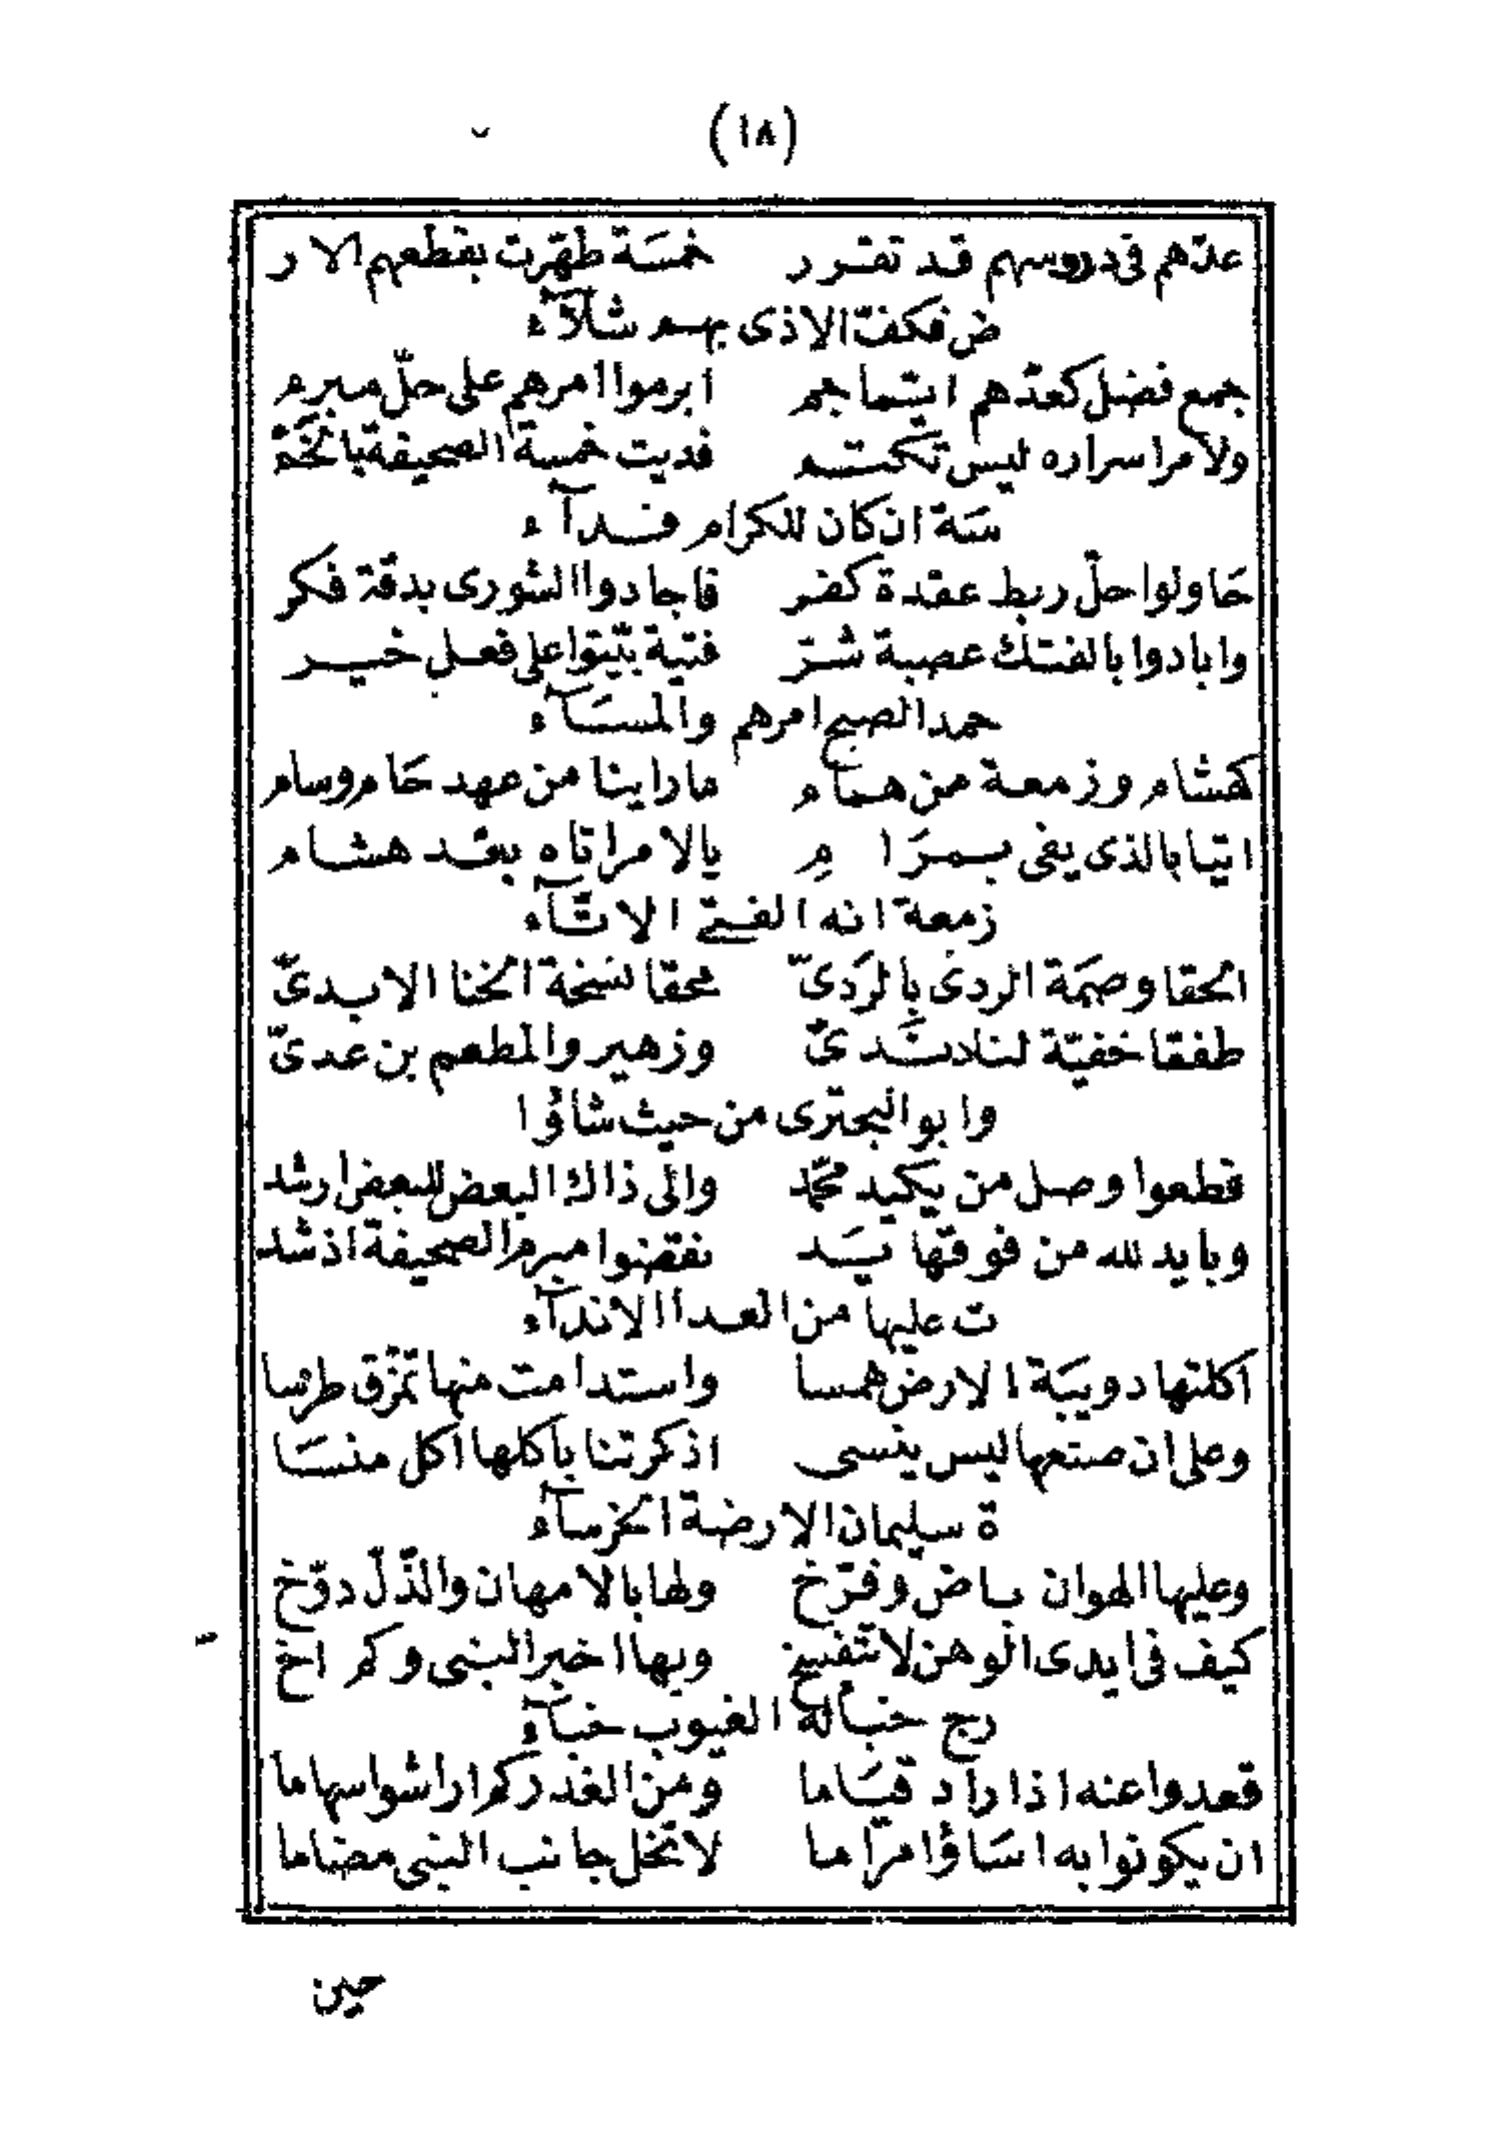 (١٨)
عدّهم فى دروسهم قد تقرر خمسَة طهّرت بقطعهم الار
ض فكفّ الاذى بهم شلّآء
جمع فضل كعدّهم ايتما جم ابرموا امرهم على حلّ مبرم
ولامر اسراره ليس تكتم فديت خمسة الصحيفة بالخَمْ
سَة ان كان للكرام فدآء
حَاولوا حلّ ربط عقدة كفر فاجادوا الشورى بدقّة فكر
وابادوا بالفتك عصبة شرّ فتية بيّتوا على فعل خير
حمد الصبح امرهم والمسَآء
كهشام وزمعة من همام ما راينا من عهد حَام وسام
اتيا بالذى يفى بمرَا مِ يالامر اتاه بعْد هشام
زمعة انه الفتى الاتّآء
الحقا وصمَة الردى بِالرَدىّ محقا نسَخة الخنا الابدىّ
طفقا خفيّة لنادنَدىّ وزهير والمطعم بن عدىّ
وابو البحترى من حيث شاؤا
قطعوا وصل من يكيد محمّد والى ذاك البعض للبعض ارشد
وبايد لله من فوقها يَد نقضوا مبرم الصحيفة اذ شد
ت عليها من العدا الاندآء
اكلتها دويبَة الارض همسا واستدامت منها تمزّق طرسا
وعلى ان صنعها ليس ينسى اذكرتنا باكلها اكل منسَا
ة سليمان الارضة الخرسآء
وعليها الهوان باض وفرّخ ولها بالامهان والذّلّ دوّخ
كيف فى ايدى الوهن لا تتفسخ وبها اخبر النبى وكم اخ
رج خبأ له الغيوب خبآء
قعدوا عنه اذا راد قيَاما ومن الغدر كم اراشوا سهاما
ان يكونوا به اسَاؤا مرّاما لا تخل جانب النبى مضاما
حين